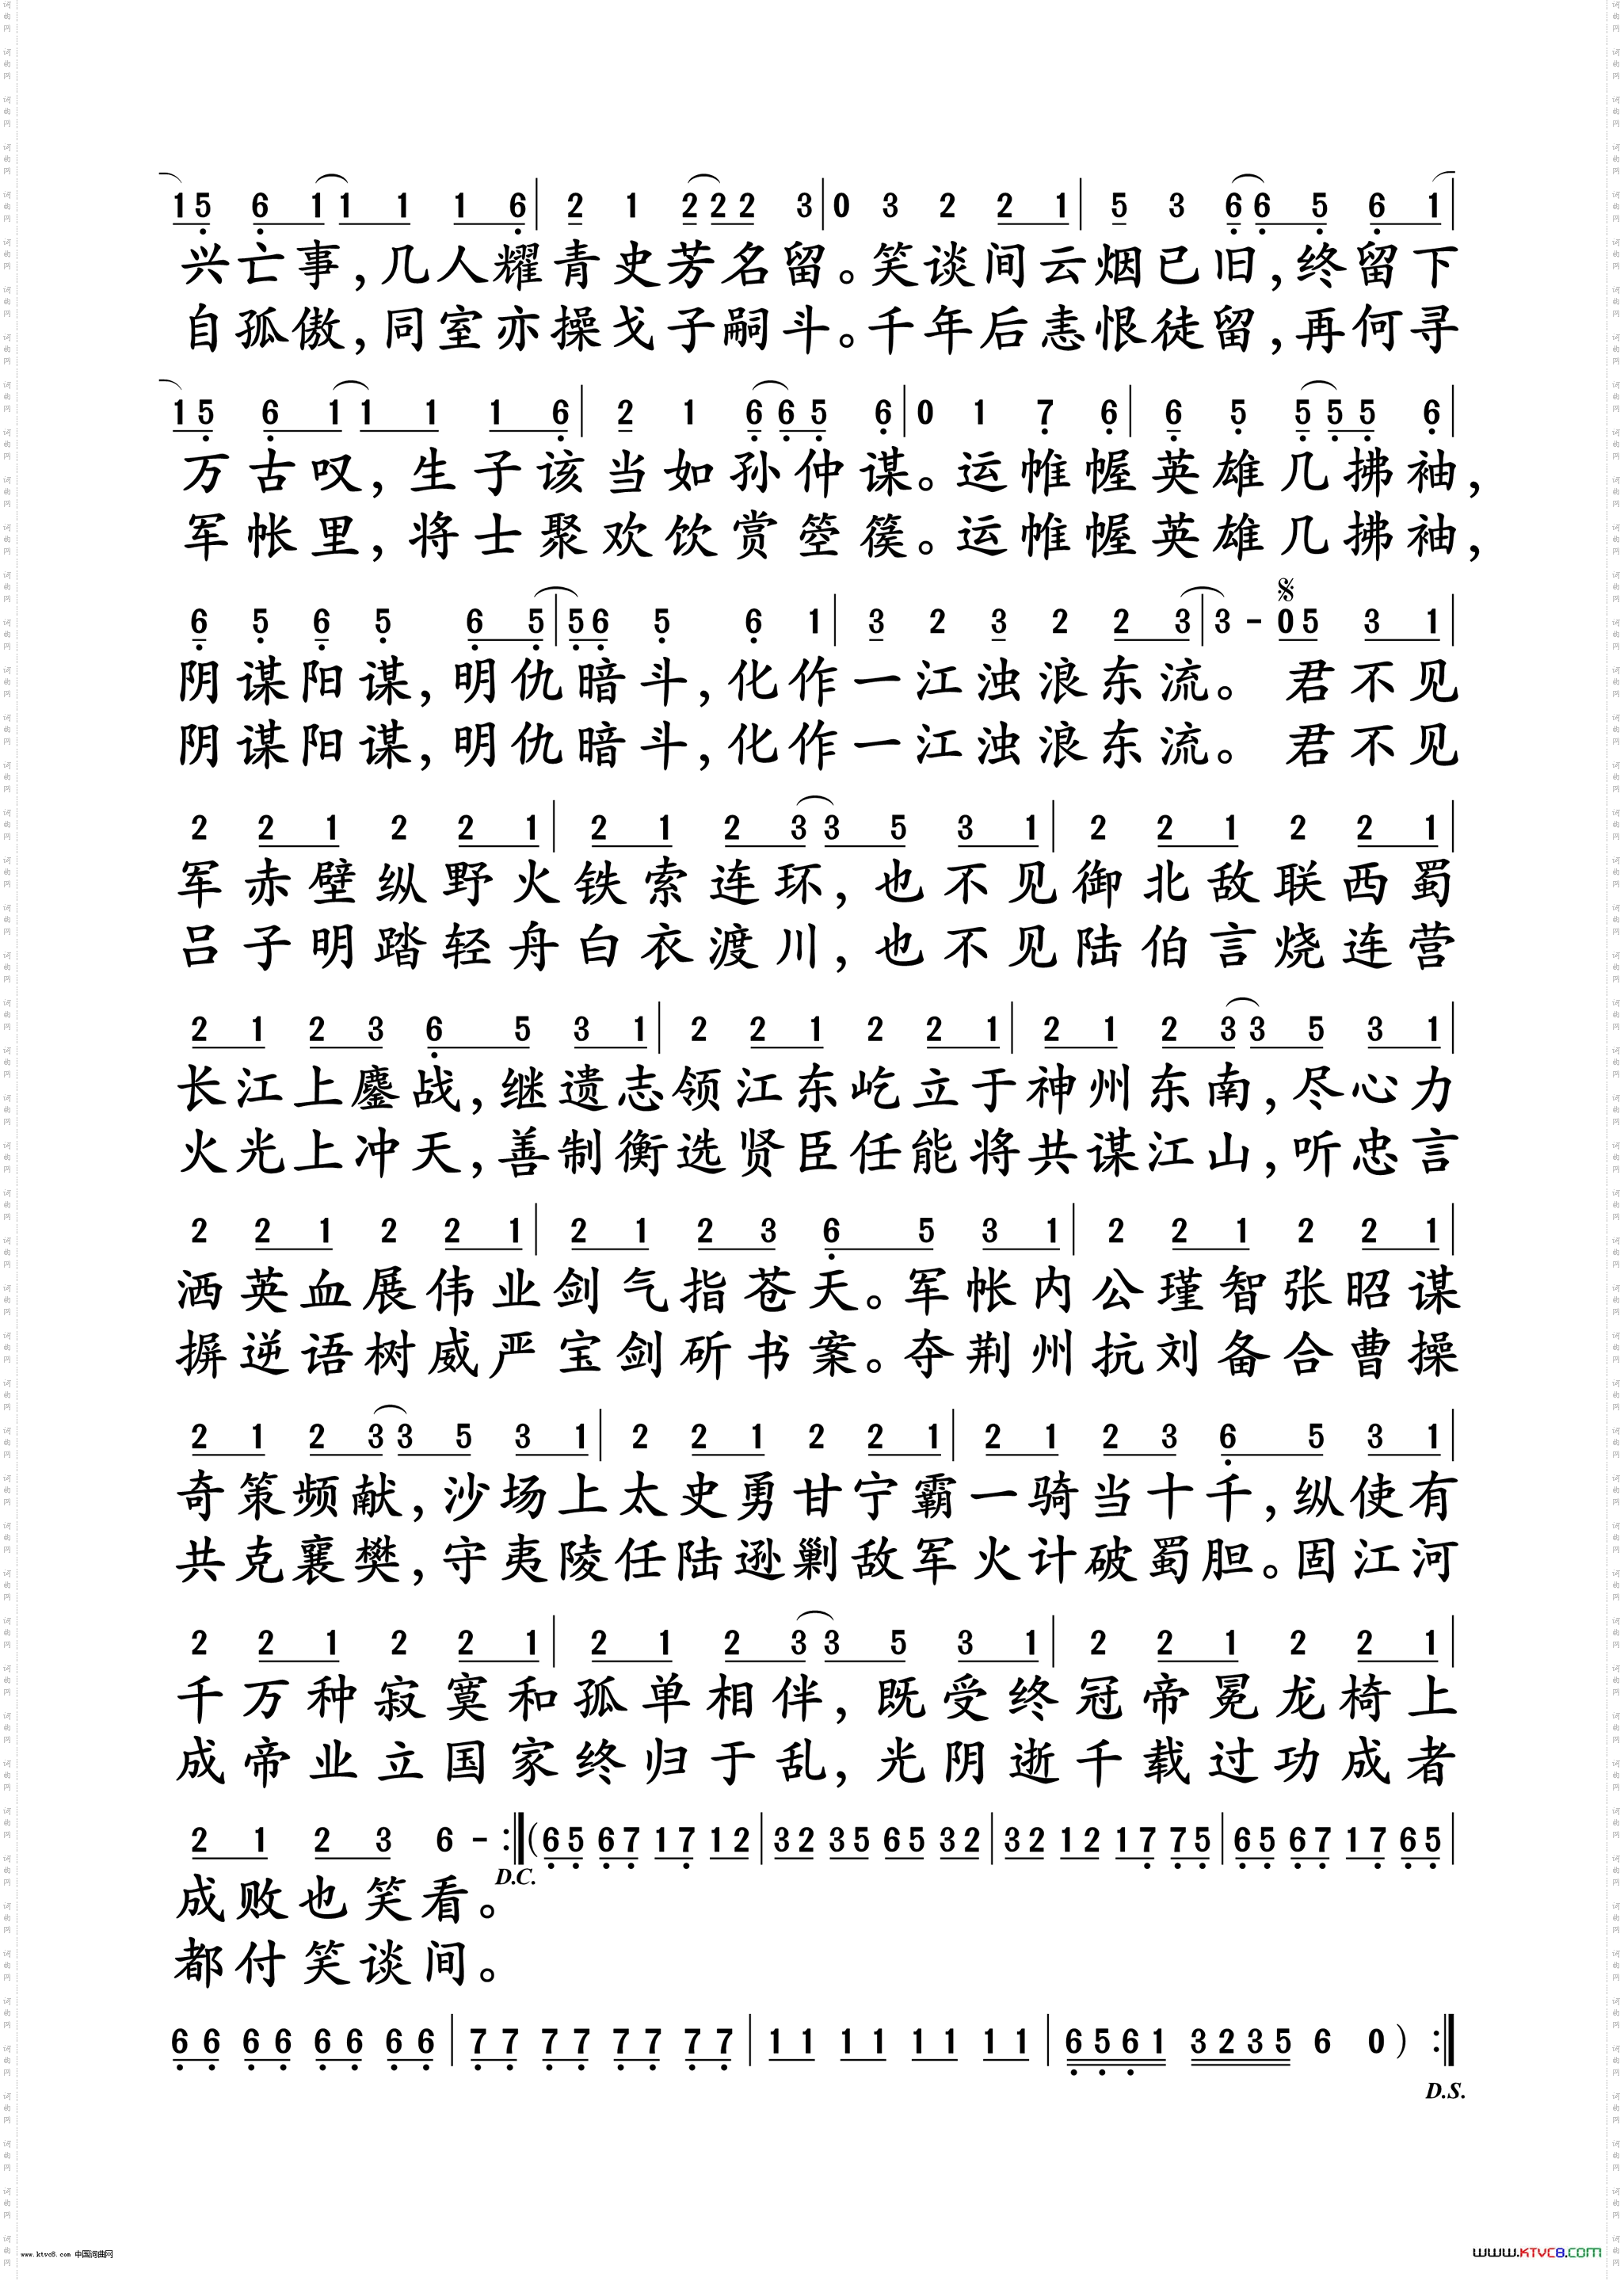 1 5 6 1 1 1 1 6 | 2 1 2 2 2 3 | 0 3 2 2 1 | 5 3 6 6 5 6 1 |
兴亡事,几人耀青史芳名留。笑谈间云烟已旧,终留下
自孤傲,同室亦操戈子嗣斗。千年后恚恨徒留,再何寻
1 5 6 1 1 1 1 6 | 2 1 6 6 5 6 | 0 1 7 6 | 6 5 5 5 5 6 |
万古叹,生子该当如孙仲谋。运帷幄英雄几拂袖,
军帐里,将士聚欢饮赏箜篌。运帷幄英雄几拂袖,
6 5 6 5 6 5 | 5 6 5 6 1 | 3 2 3 2 2 3 | 3 - 0 5 3 1 |
阴谋阳谋,明仇暗斗,化作一江浊浪东流。君不见
阴谋阳谋,明仇暗斗,化作一江浊浪东流。君不见
2 2 1 2 2 1 | 2 1 2 3 3 5 3 1 | 2 2 1 2 2 1 |
军赤壁纵野火铁索连环,也不见御北敌联西蜀
吕子明踏轻舟白衣渡川,也不见陆伯言烧连营
2 1 2 3 6 5 3 1 | 2 2 1 2 2 1 | 2 1 2 3 3 5 3 1 |
长江上鏖战,继遗志领江东屹立于神州东南,尽心力
火光上冲天,善制衡选贤臣任能将共谋江山,听忠言
2 2 1 2 2 1 | 2 1 2 3 6 5 3 1 | 2 2 1 2 2 1 |
洒英血展伟业剑气指苍天。军帐内公瑾智张昭谋
摒逆语树威严宝剑斫书案。夺荆州抗刘备合曹操
2 1 2 3 3 5 3 1 | 2 2 1 2 2 1 | 2 1 2 3 6 5 3 1 |
奇策频献,沙场上太史勇甘宁霸一骑当十千,纵使有
共克襄樊,守夷陵任陆逊剿敌军火计破蜀胆。固江河
2 2 1 2 2 1 | 2 1 2 3 3 5 3 1 | 2 2 1 2 2 1 |
千万种寂寞和孤单相伴,既受终冠帝冕龙椅上
成帝业立国家终归于乱,光阴逝千载过功成者
2 1 2 3 6 - :‖ ( 6 5 6 7 1 7 1 2 | 3 2 3 5 6 5 3 2 | 3 2 1 2 1 7 7 5 | 6 5 6 7 1 7 6 5 |
D.C.
成败也笑看。
都付笑谈间。
6 6 6 6 6 6 6 6 | 7 7 7 7 7 7 7 7 | 1 1 1 1 1 1 1 1 | 6 5 6 1 3 2 3 5 6 0 ) :‖
D.S.
www.ktvc8.com 中国词曲网
WWW.KTVC8.COM